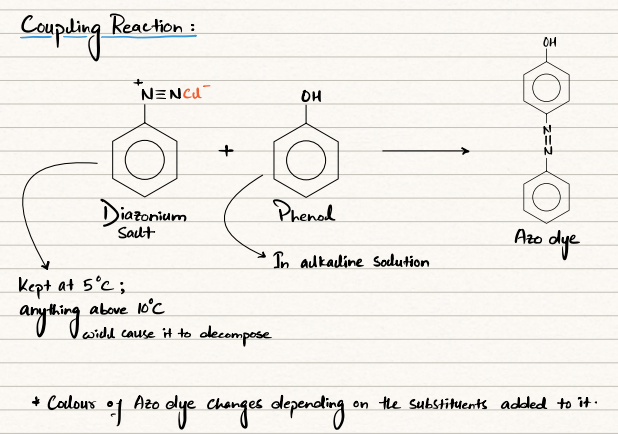 Coupling Reaction :
+
N≡NCl⁻
OH
OH
+
N
N
Diazonium
salt
Phenol
Azo dye
In alkaline solution
Kept at 5°C ;
anything above 10°C
will cause it to decompose
* Colour of Azo dye changes depending on the substituents added to it.